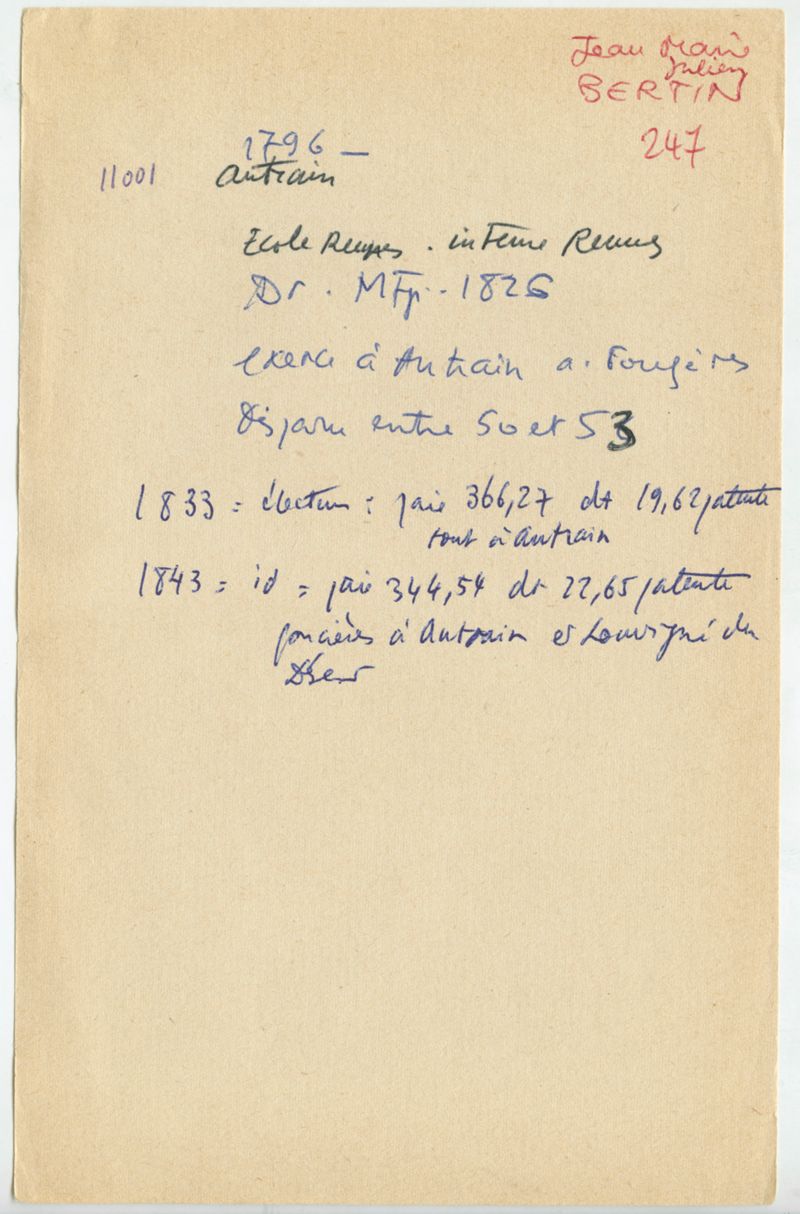 Jean Marie
Julien
BERTIN
247
1796 —
11001 Antrain
Ecole Rennes . interne Rennes
Dr . M 1826
exerce à Antrain a. Fougères
Disparu entre 50 et 53
1833 = électeur : paie 366,27 dt 19,62 patente
tout à Antrain
1843 = id = paie 344,54 dt 22,65 patente
foncières à Antrain et Louvigné du
Désert